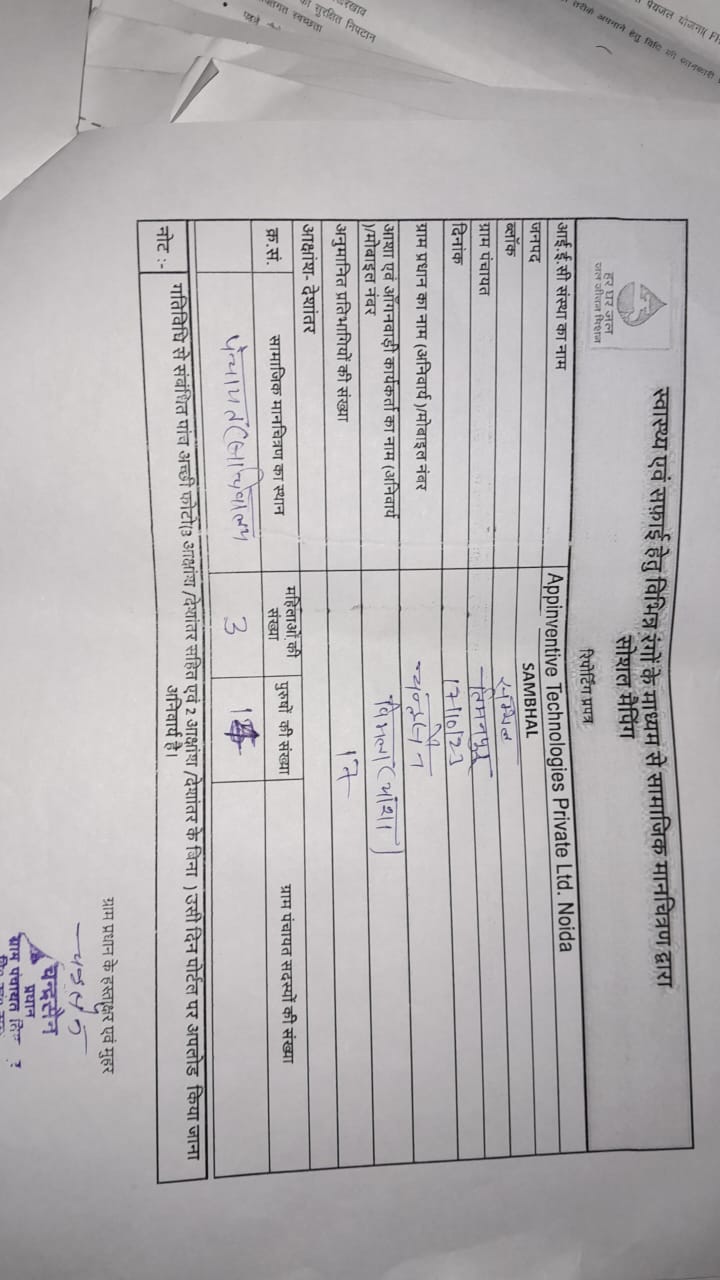 हर घर जल
जल जीवन मिशन
स्वास्थ्य एवं सफ़ाई हेतु विभिन्न रंगों के माध्यम से सामाजिक मानचित्रण द्वारा
सोशल मैपिंग
रिपोर्टिंग प्रपत्र
आई.ई.सी संस्था का नाम Appinventive Technologies Private Ltd. Noida
जनपद SAMBHAL
ब्लॉक सम्भल
ग्राम पंचायत
दिनांक 17/10/23
ग्राम प्रधान का नाम (अनिवार्य )/मोबाइल नंबर चन्द्रसैन
आशा एवं आँगनवाड़ी कार्यकर्ता का नाम (अनिवार्य विमला (आशा)
)/मोबाइल नंबर
अनुमानित प्रतिभागियों की संख्या
आक्षांश- देशांतर
क्र.सं. सामाजिक मानचित्रण का स्थान महिलाओं की संख्या पुरुषों की संख्या ग्राम पंचायत सदस्यों की संख्या
पंचायत 3
नोट :- गतिविधि से संबंधित पांच अच्छी फोटो(3 आक्षांश /देशांतर सहित एवं 2 आक्षांश /देशांतर के बिना ) उसी दिन पोर्टल पर अपलोड किया जाना
अनिवार्य है।
ग्राम प्रधान के हस्ताक्षर एवं मुहर
चन्द्रसैन
प्रधान
ग्राम पंचायत